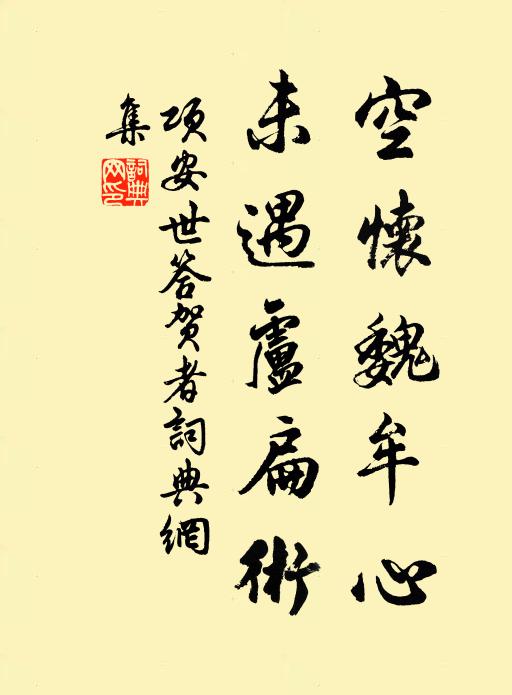 空懷魏牟心
未遇盧扁術
項安世答賀者詞典網
集
詞典網印